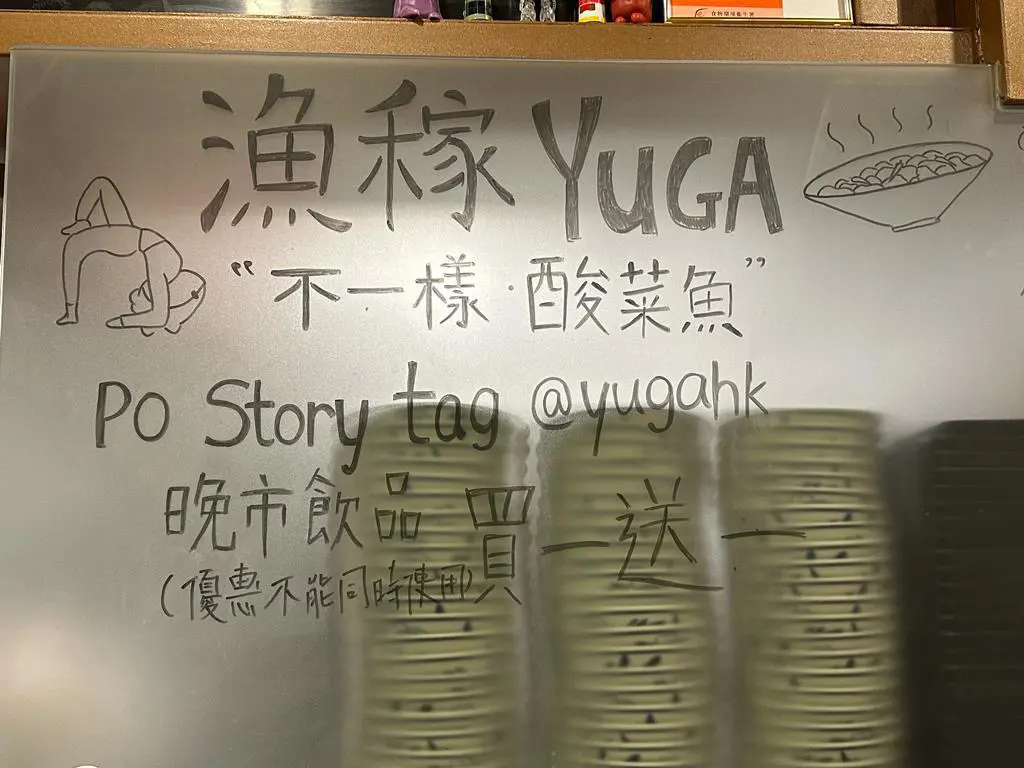 漁稼 YUGA
“不一樣·酸菜魚”
PO Story tag @yugahk
晚市飲品 買一送一
(優惠不能同時使用)